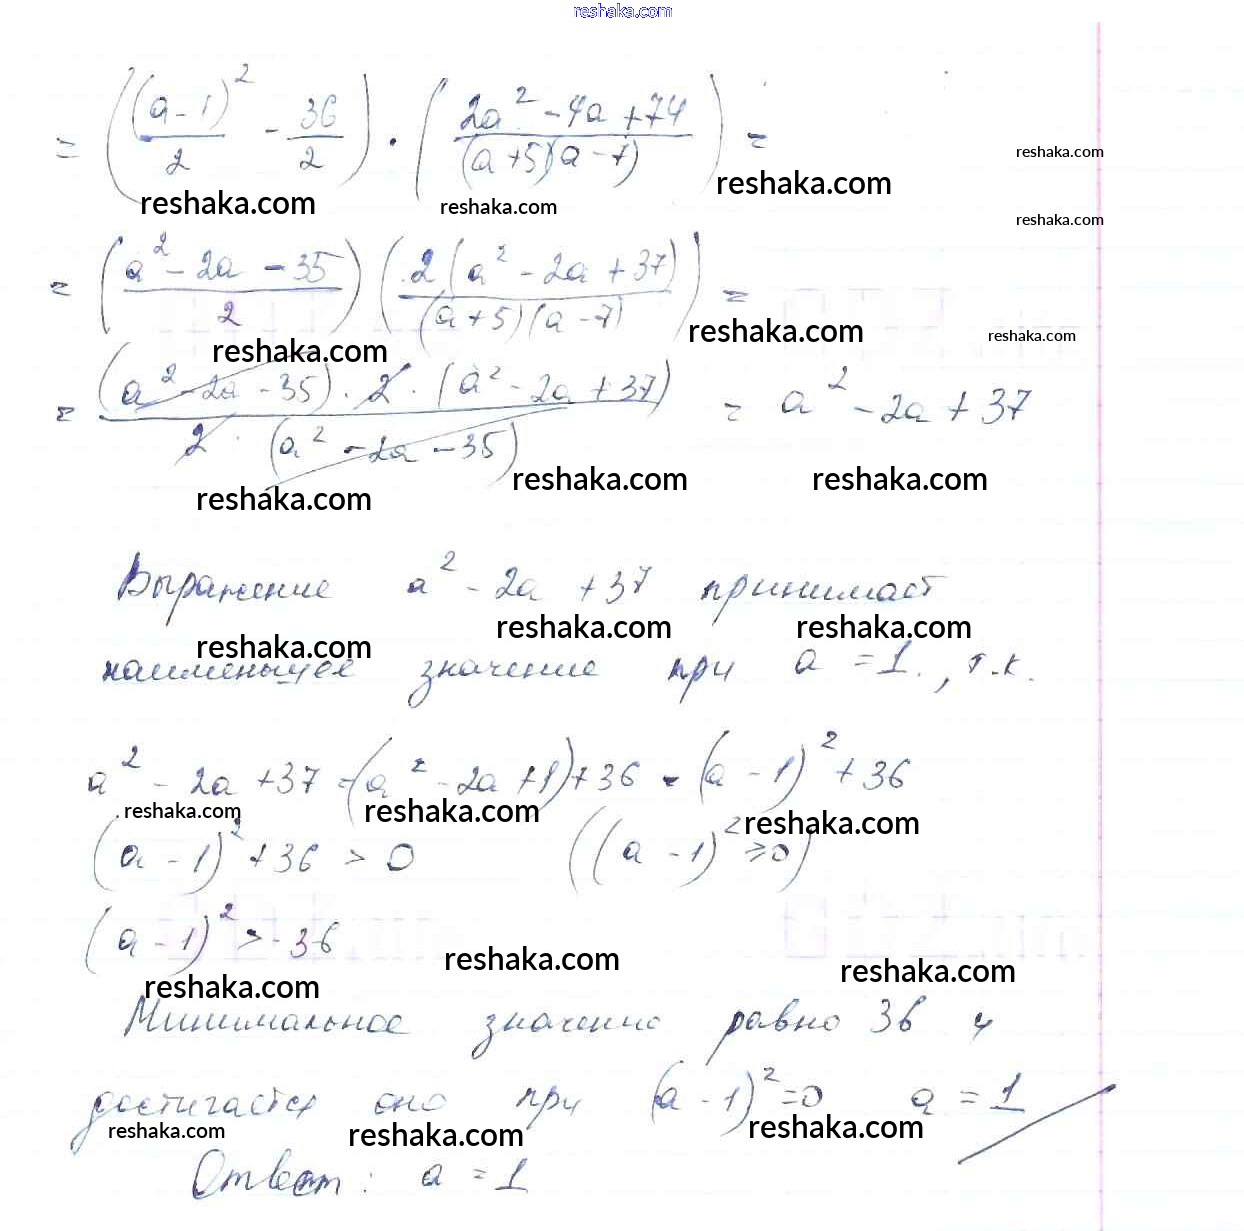 reshaka.com
= ((a-1)²/2 - 36/2) · ((2a² - 4a + 74)/((a+5)(a-7))) =
reshaka.com
reshaka.com reshaka.com reshaka.com
reshaka.com
= ((a² - 2a - 35)/2) (2(a² - 2a + 37)/((a+5)(a-7))) =
reshaka.com reshaka.com reshaka.com
= ((a² - 2a - 35) · 2 · (a² - 2a + 37))/(2 · (a² - 2a - 35)) = a² - 2a + 37
reshaka.com reshaka.com reshaka.com
Выражение a² - 2a + 37 принимает
reshaka.com reshaka.com reshaka.com
наименьшее значение при a = 1., т.к.
a² - 2a + 37 = (a² - 2a + 1) + 36 = (a - 1)² + 36
reshaka.com reshaka.com reshaka.com
(a - 1)² + 36 > 0 ((a - 1)² ≥ 0)
(a - 1)² > -36
reshaka.com reshaka.com reshaka.com
Минимальное значение равно 36 и
достигается оно при (a - 1)² = 0 a = 1
reshaka.com reshaka.com reshaka.com
Ответ: a = 1